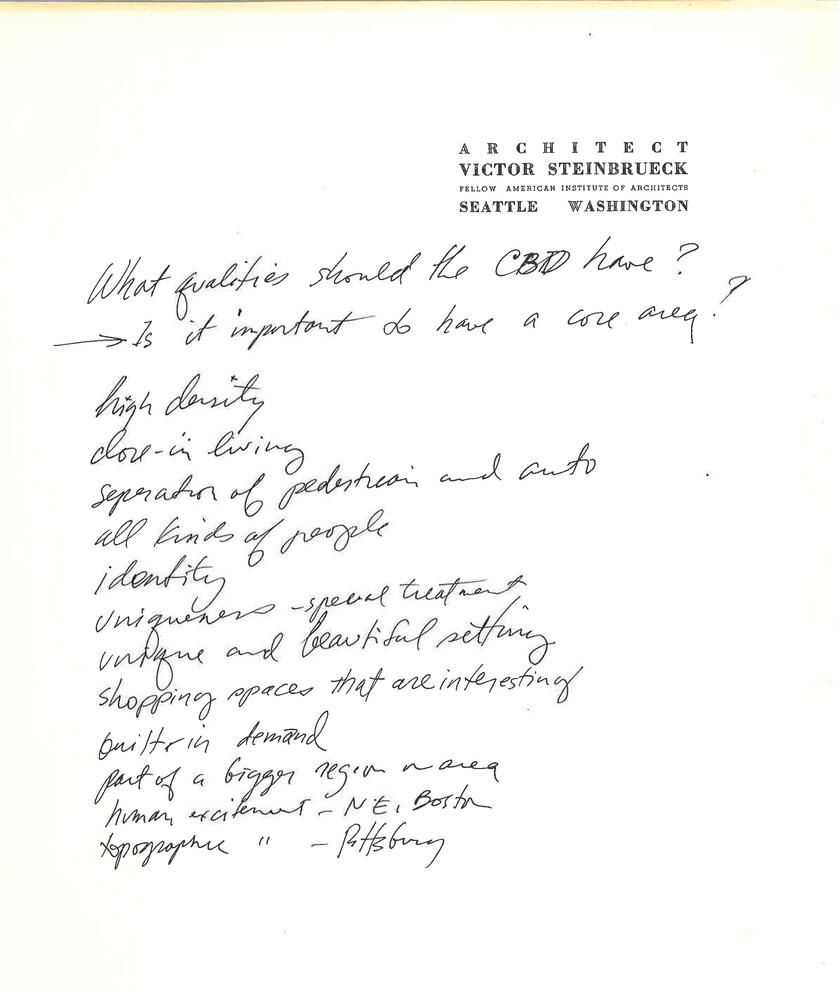 ARCHITECT
VICTOR STEINBRUECK
FELLOW AMERICAN INSTITUTE OF ARCHITECTS
SEATTLE WASHINGTON
What qualities should the CBD have?
→ Is it important to have a core area?
high density
close-in living
seperation of pedestrian and auto
all kinds of people
identity
uniqueness - special treatment
unique and beautiful setting
shopping spaces that are interesting
built-in demand
part of a bigger region or area
human excitement - N.E, Boston
topographic " - Pittsburg